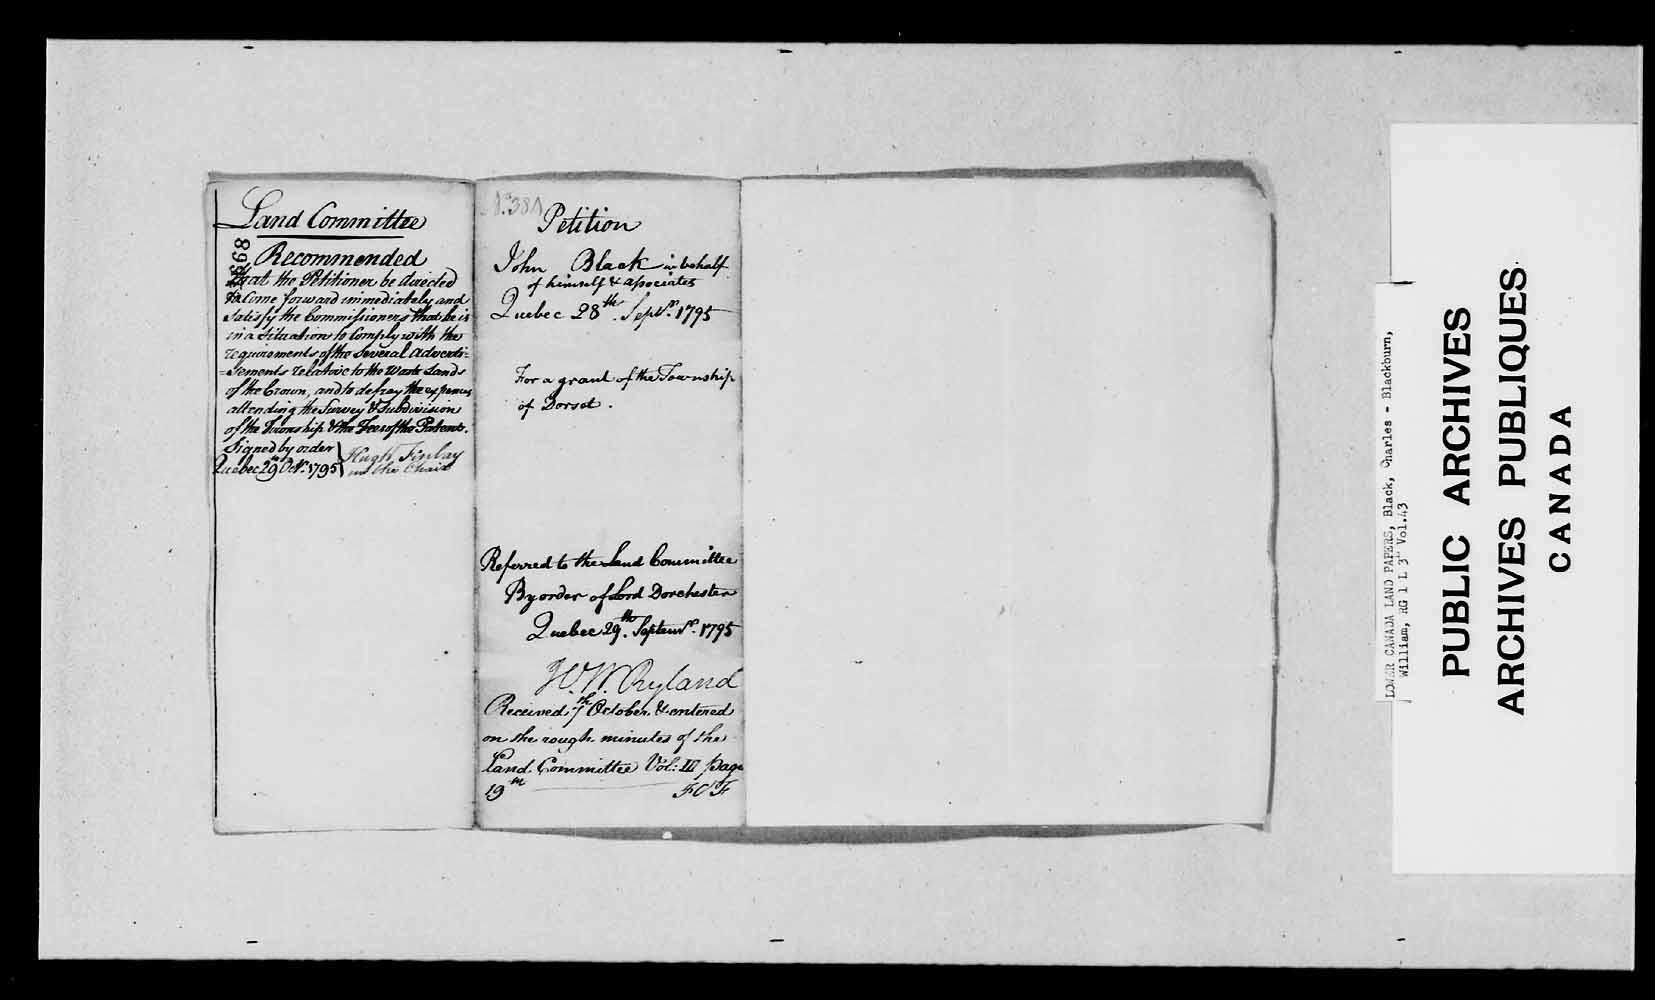 Land Committee
Recommended
that the Petitioner be directed
to Come forward immediately and
satisfy the Commissioners that he is
in a Situation to Comply with the
requirements of the several Adverti=
=sements relative to the Waste Lands
of the Crown, and to defray the expences
attending the Survey & Subdivision
of the Township & the Fees of the Patent.
Signed by order
Quebec 29 Octr. 1795
Hugh Finlay
in the Chair
No. 381
Petition
John Black in behalf
of himself & associates
Quebec 28th. Septr. 1795
For a grant of the Township
of Dorset.
Referred to the Land Committee
By order of Lord Dorchester
Quebec 29th. Septemr. 1795
H.W. Ryland
Received 7th October & entered
on the rough minutes of the
Land Committee Vol: III page
19th
LOWER CANADA LAND PAPERS, Black, Charles - Blackburn,
William, RG 1 L 3" Vol.43
PUBLIC ARCHIVES
ARCHIVES PUBLIQUES
CANADA